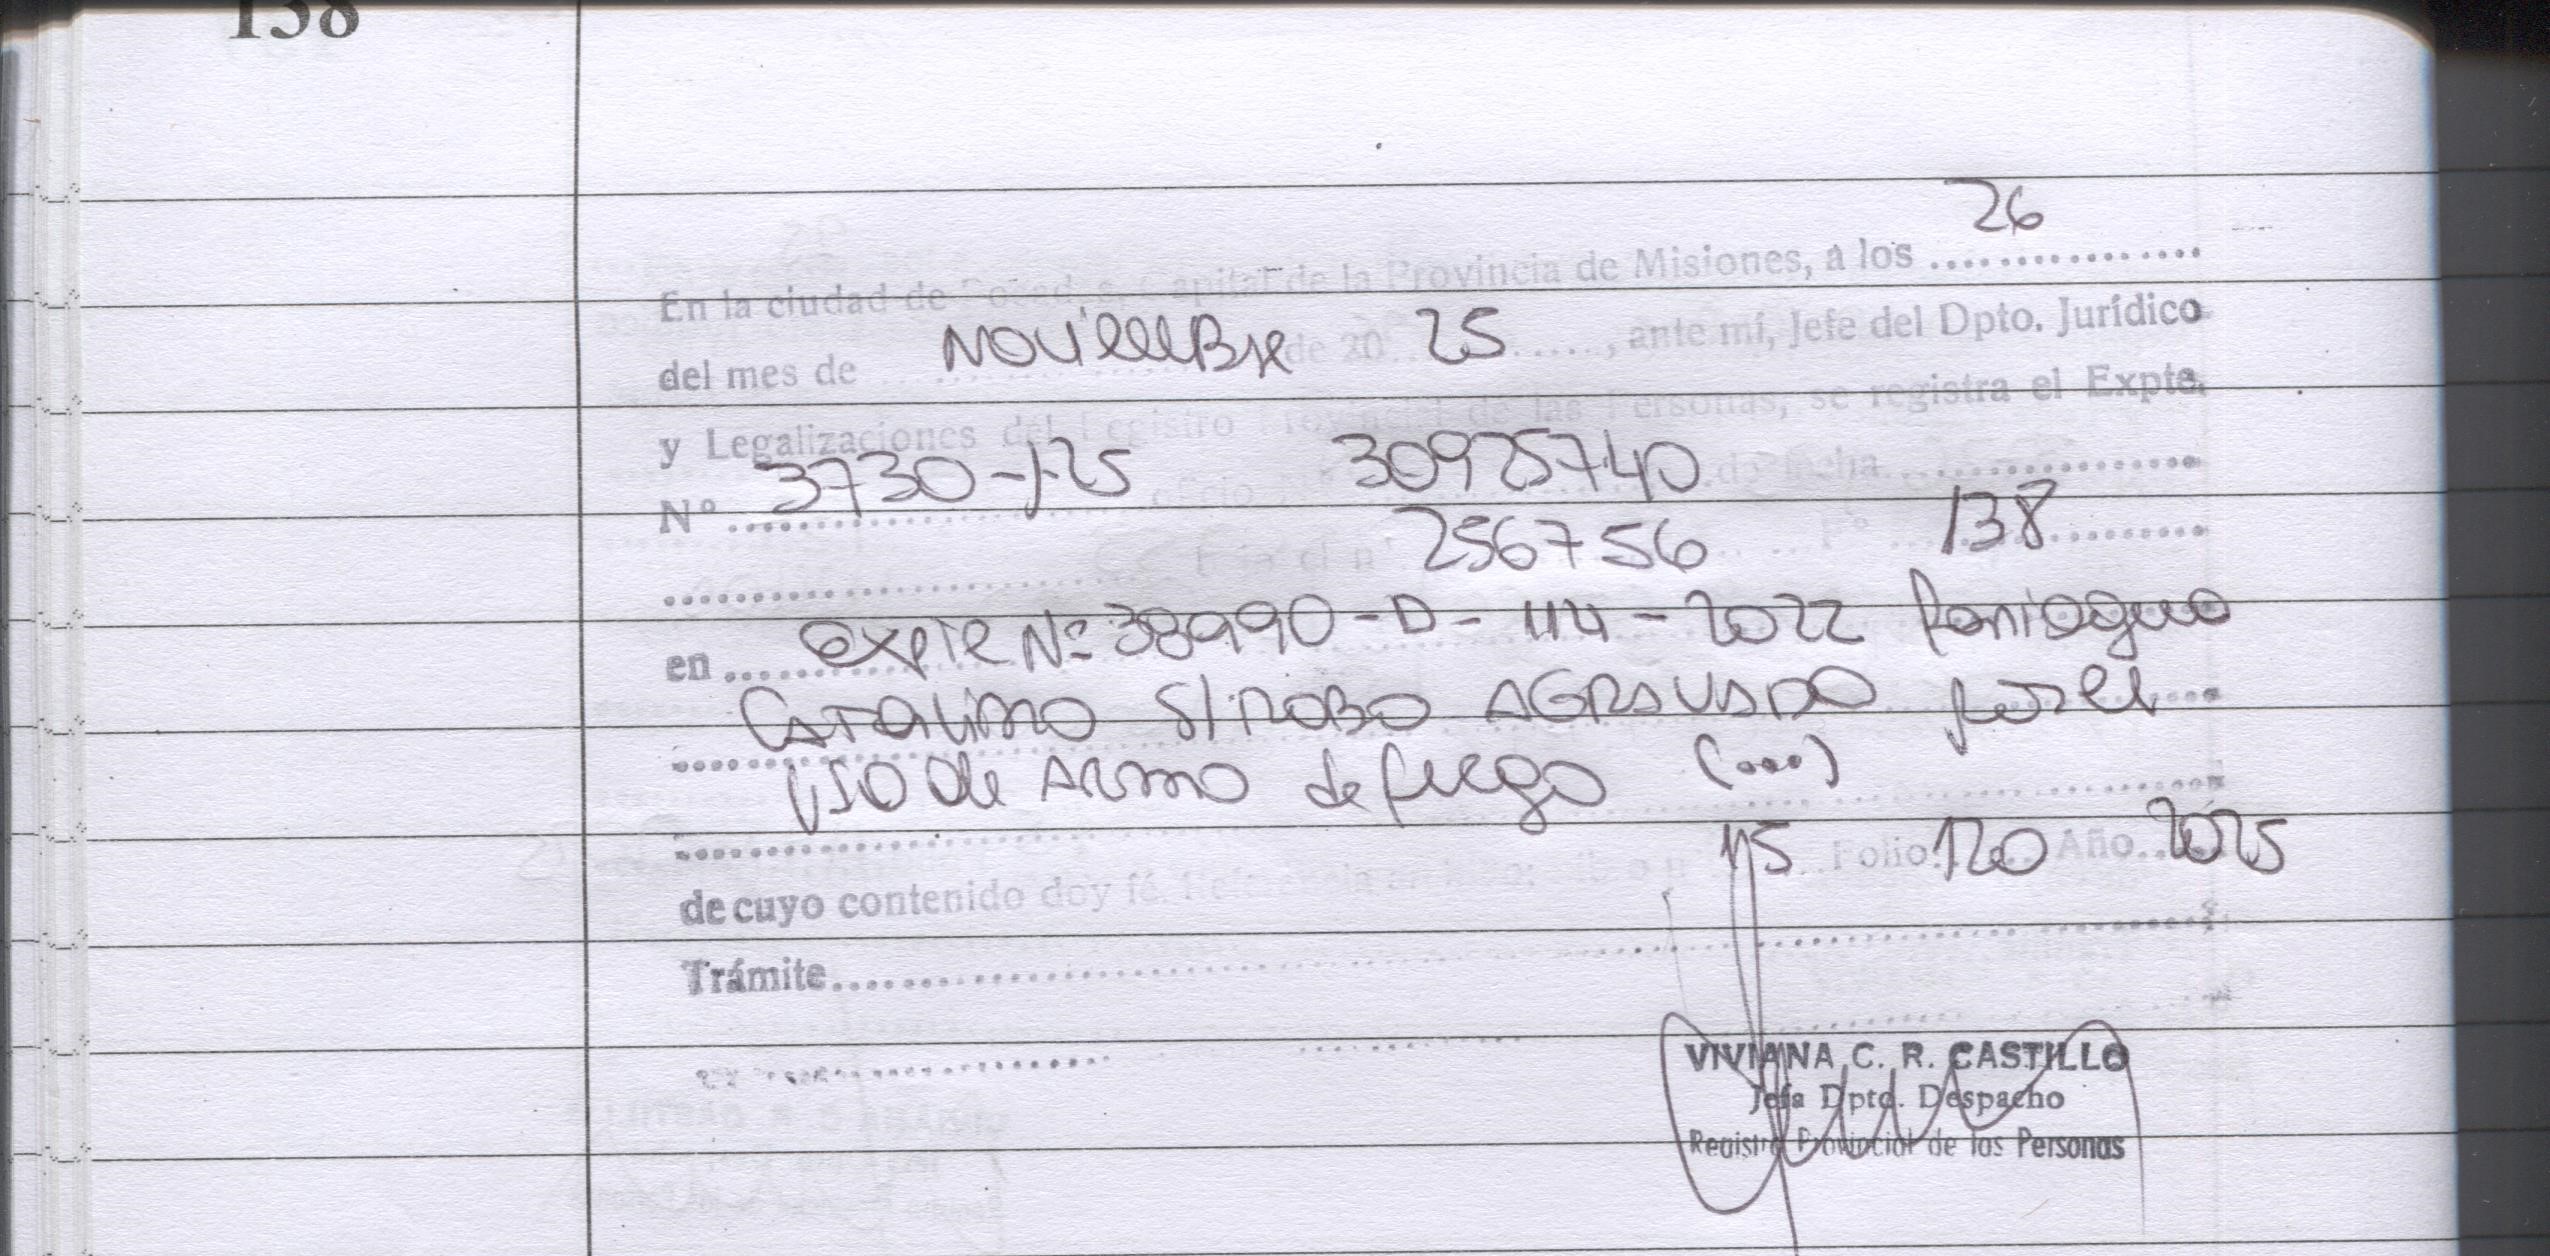 138
26
En la ciudad de Posadas, Capital de la Provincia de Misiones, a los ................
del mes de Noviembre de 20 25 ......, ante mí, Jefe del Dpto. Jurídico
y Legalizaciones del Registro Provincial de las Personas, se registra el Expte.
Nº 3730-J-25 oficio 30925740 de fecha ................
2567 56 Fº 138
en expte Nº 38990-D-114-2022 Paniagua
Catalino S/ ROBO AGRAVADO por el
uso de ARMA de fuego (...)
de cuyo contenido doy fé. 115 Folio 120 Año 2025
Trámite
VIVIANA C. R. CASTILLO
Jefa Dpto. Despacho
Registro Provincial de las Personas